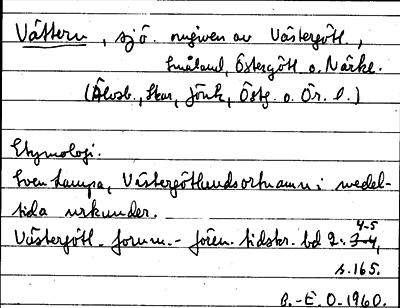 Vättern, sjö. omgiven av Västergötl.,
Småland, Östergötl o. Närke.
(Älvsb., Skar., Jönk., Östg. o. Ör. l.)
Etymologi.
Sven Lampa, Västergötlands ortnamn i medel-
tida urkunder.
Västergötl. fornm.-fören. tidskr. bd 2: 3-4, 4-5
s. 165.
B.-E. O. 1960.